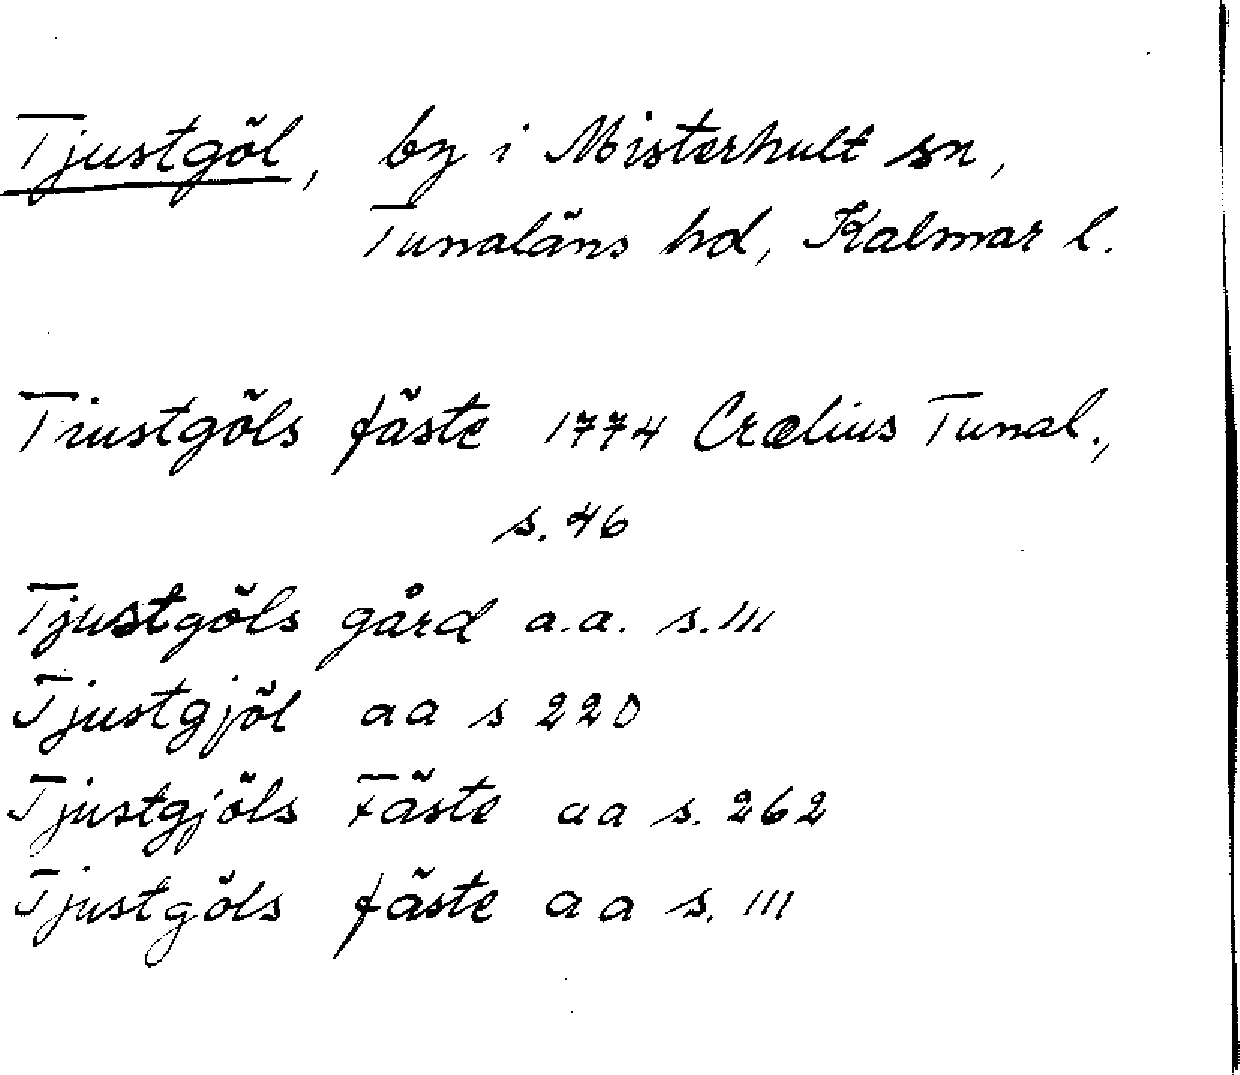 Tjustgöl, by i Misterhult sn,
Tunaläns hd, Kalmar l.
Triustgöls fäste 1774 Crælius Tunal.,
s. 46
Tjustgöls gård a.a. s. 111
Tjustgjöl aa s 220
Tjustgjöls Fäste aa s. 262
Tjustgöls fäste aa s. 111